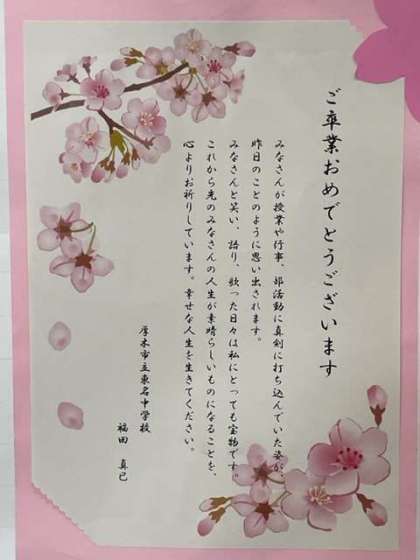 ご卒業おめでとうございます
みなさんが授業や行事、部活動に真剣に打ち込んでいた姿が
昨日のことのように思い出されます。
みなさんと笑い、語り、歌った日々は私にとっても宝物です。
これから先のみなさんの人生が素晴らしいものになることを、
心よりお祈りしています。幸せな人生を生きてください。
厚木市立東名中学校
福田 真己